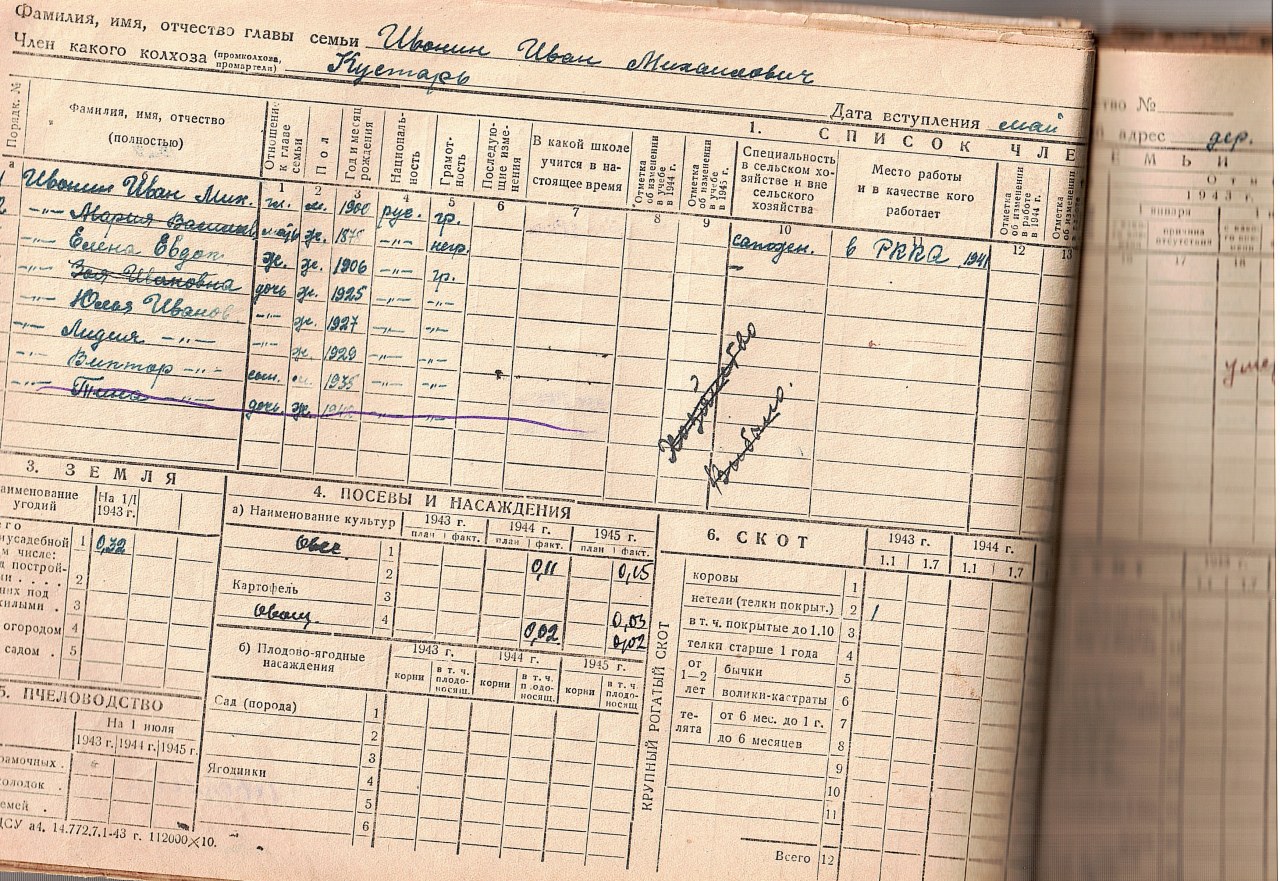 Фамилия, имя, отчество главы семьи Ивонин Иван Михайлович
Член какого колхоза (промколхоза, промартели) Кустарь
Дата вступления май
1. СПИСОК ЧЛЕ
Порядк. №
Фамилия, имя, отчество (полностью)
Отношение к главе семьи
Пол
Год и месяц рождения
Национальность
Грамотность
Последующие изменения
В какой школе учится в настоящее время
Отметка об изменении в учебе в 1944 г.
Отметка об изменении в учебе в 1945 г.
Специальность в сельском хозяйстве и вне сельского хозяйства
Место работы и в качестве кого работает
Отметка об изменении в работе в 1944 г.
Отметка об изменении
а 1 2 3 4 5 6 7 8 9 10 11 12 13
1 Ивонин Иван Мих. гл. м. 1900 рус. гр. сапожн. в РККА 1941
2 -"- Мария мать ж. -"- негр.
-"- Елена Евдок ж. ж. 1906 -"- гр.
-"- Зоя Ивановна дочь ж. 1925 -"- -"-
-"- Юлия Иванов -"- ж. 1927 -"- -"-
-"- Лидия -"- -"- ж. 1929 -"- -"-
-"- Виктор -"- сын. м. 1935 -"- -"-
-"- -"- дочь ж. -"- -"-
хозяйство
выбыло.
3. ЗЕМЛЯ
аименование угодий
На 1/I 1943 г.
его
иусадебной 1 0,32
м числе:
д построй-
ми . . . . 2
них под
жилыми . 3
огородом 4
садом . 5
5. ПЧЕЛОВОДСТВО
На 1 июля
1943 г. 1944 г. 1945 г.
рамочных .
колодок .
семей .
ЦСУ а4. 14.772.7.1-43 г. 112000×10.
4. ПОСЕВЫ И НАСАЖДЕНИЯ
а) Наименование культур
1943 г. 1944 г. 1945 г.
план факт. план факт. план факт.
Овес 1 0,11 0,15
2
Картофель 3 0,03
Овощ 4 0,02 0,02
б) Плодово-ягодные насаждения
1943 г. 1944 г. 1945 г.
корни в т. ч. плодоносящ. корни в т. ч. плодоносящ. корни в т. ч. плодоносящ
Сад (порода) 1
2
3
Ягодники 4
5
6
6. СКОТ
1943 г. 1944 г.
1.1 1.7 1.1 1.7
КРУПНЫЙ РОГАТЫЙ СКОТ
коровы 1
нетели (телки покрыт.) 2 1
в т. ч. покрытые до 1.10 3
телки старше 1 года 4
от 1—2 лет
бычки 5
волики-кастраты 6
телята
от 6 мес. до 1 г. 7
до 6 месяцев 8
9
10
11
Всего 12
тво №
й адрес дер.
ЕМЬИ
1943 г.
января
причина отсутствия
16 17 18
умер